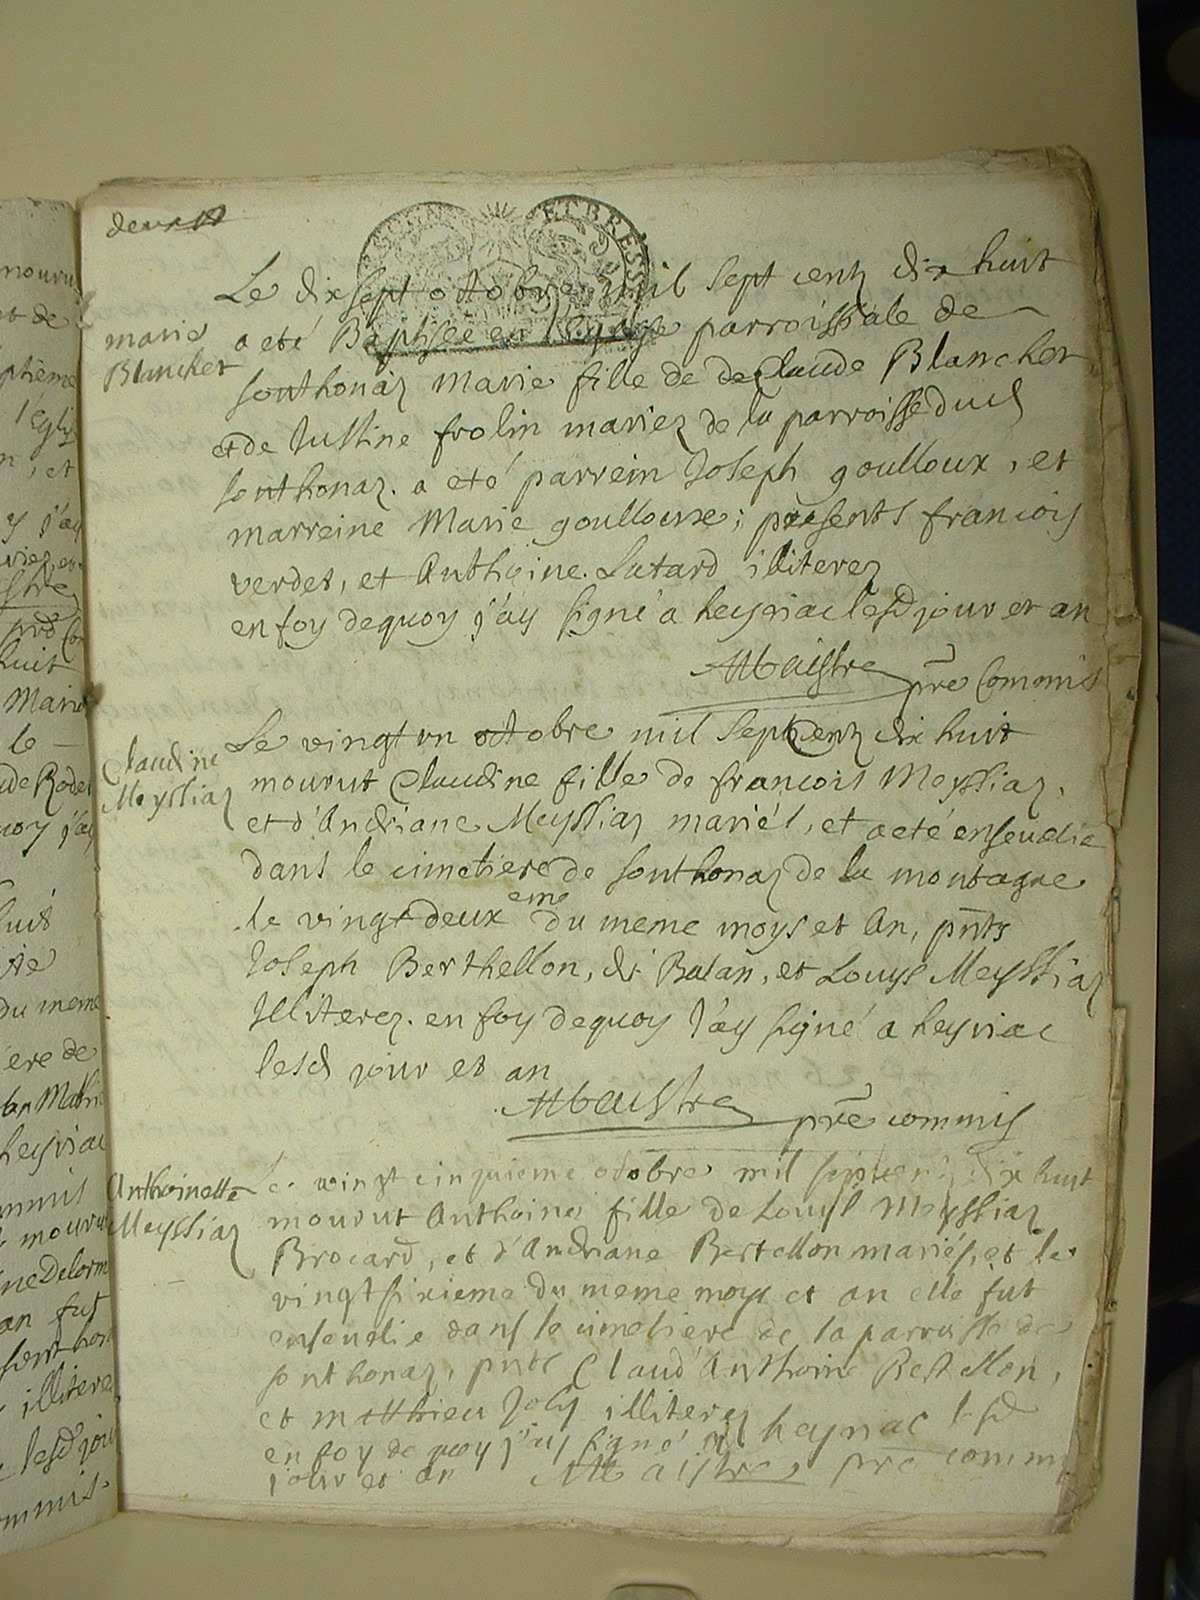 deux
BOURG ET BRESSE
Le dix sept octobre mil sept centz dix huit
marie
Blanchet
a eté Baptisée en l'Eglise parroissiale de
sonthonaz Marie fille de de Claude Blanchet
et de Justine frolin mariez de la parroisse dud
sonthonaz. a eté parrein Joseph goulloux, et
marreine Marie goulloux; presents francois
verdet, et Anthoine Lutard illiterez
en foy dequoy j'ay signé a heyriac lesd jour et an
Maistre prē Commis
Claudine
Meyssiaz
Le vingt un octobre mil sept centz dix huit
mourut Claudine fille de francois Meyssiaz,
et d'Andriane Meyssiaz mariés, et a eté ensevelie
dans le cimetiere de sonthonaz de la montagne
le vingt deux eme du meme moys et An, pnts
Joseph Berthellon, de Balan, et Louys Meyssiaz
Illiterez. en foy dequoy J'ay signé a heyriac
lesd jour et an
Maistre prē commis
Anthoinette
Meyssiaz
Le vingt cinquieme octobre mil sept cent dix huit
mourut Anthoine fille de Louys Meyssiaz
Brocard, et d'Andriane Bertellon mariés, et le
vingt sixieme du meme moys et an elle fut
ensevelie dans le cimetiere de la parroisse de
sonthonaz, pnts Claud' Anthoine Bertellon,
et matthieu Joly illiterez
en foy de quoy j'ay signé a heyriac lesd
jour et an Maistre prē commis